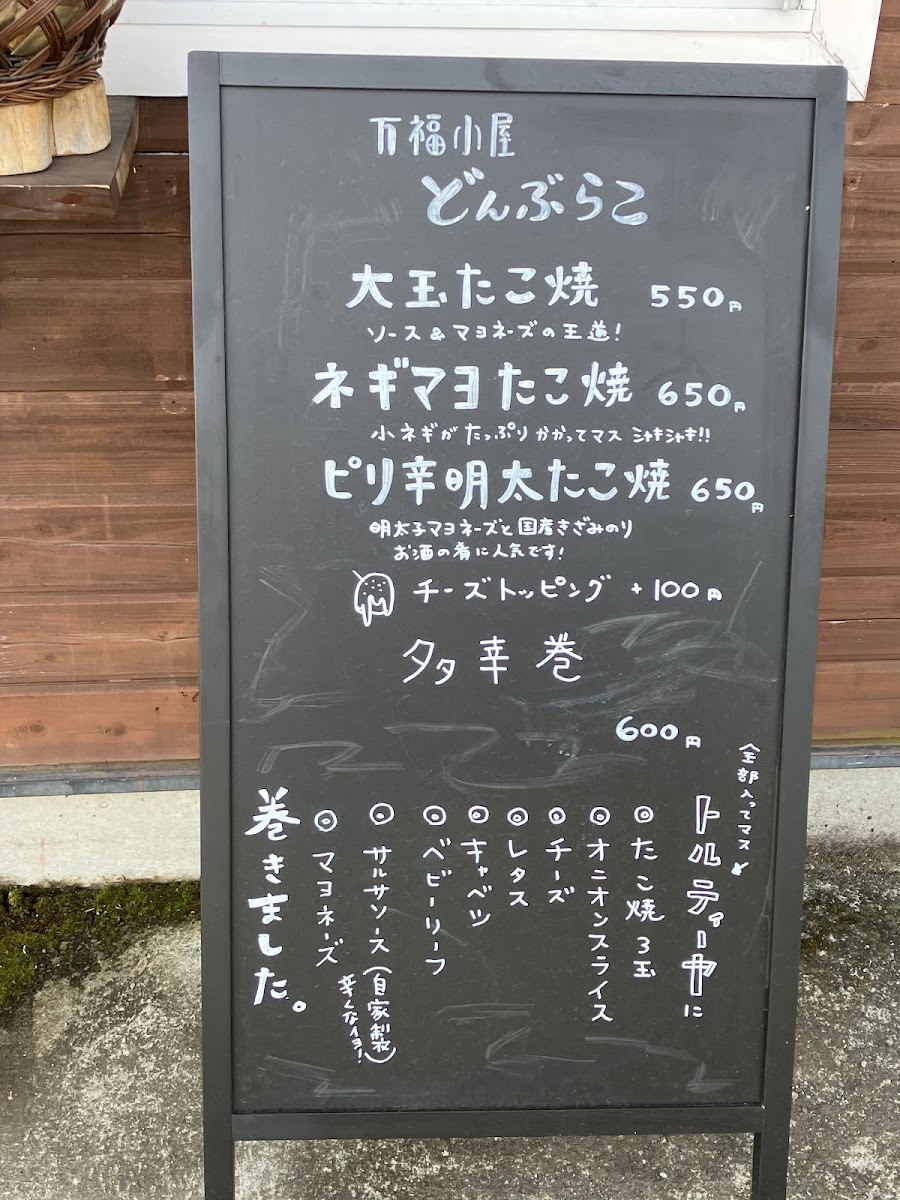 万福小屋
どんぶらこ
大玉たこ焼 550円
ソース&マヨネーズの王道!
ネギマヨたこ焼 650円
小ネギがたっぷりかかってマス シャキシャキ!!
ピリ辛明太たこ焼 650円
明太子マヨネーズと国産きざみのり
お酒の肴に人気です!
チーズトッピング +100円
タタ幸巻
600円
全部入ってマス
トルティーヤに
◎たこ焼3玉
◎オニオンスライス
◎チーズ
◎レタス
◎キャベツ
◎ベビーリーフ
◎サルサソース(自家製)
辛くナイヨ!
◎マヨネーズ
巻きました。